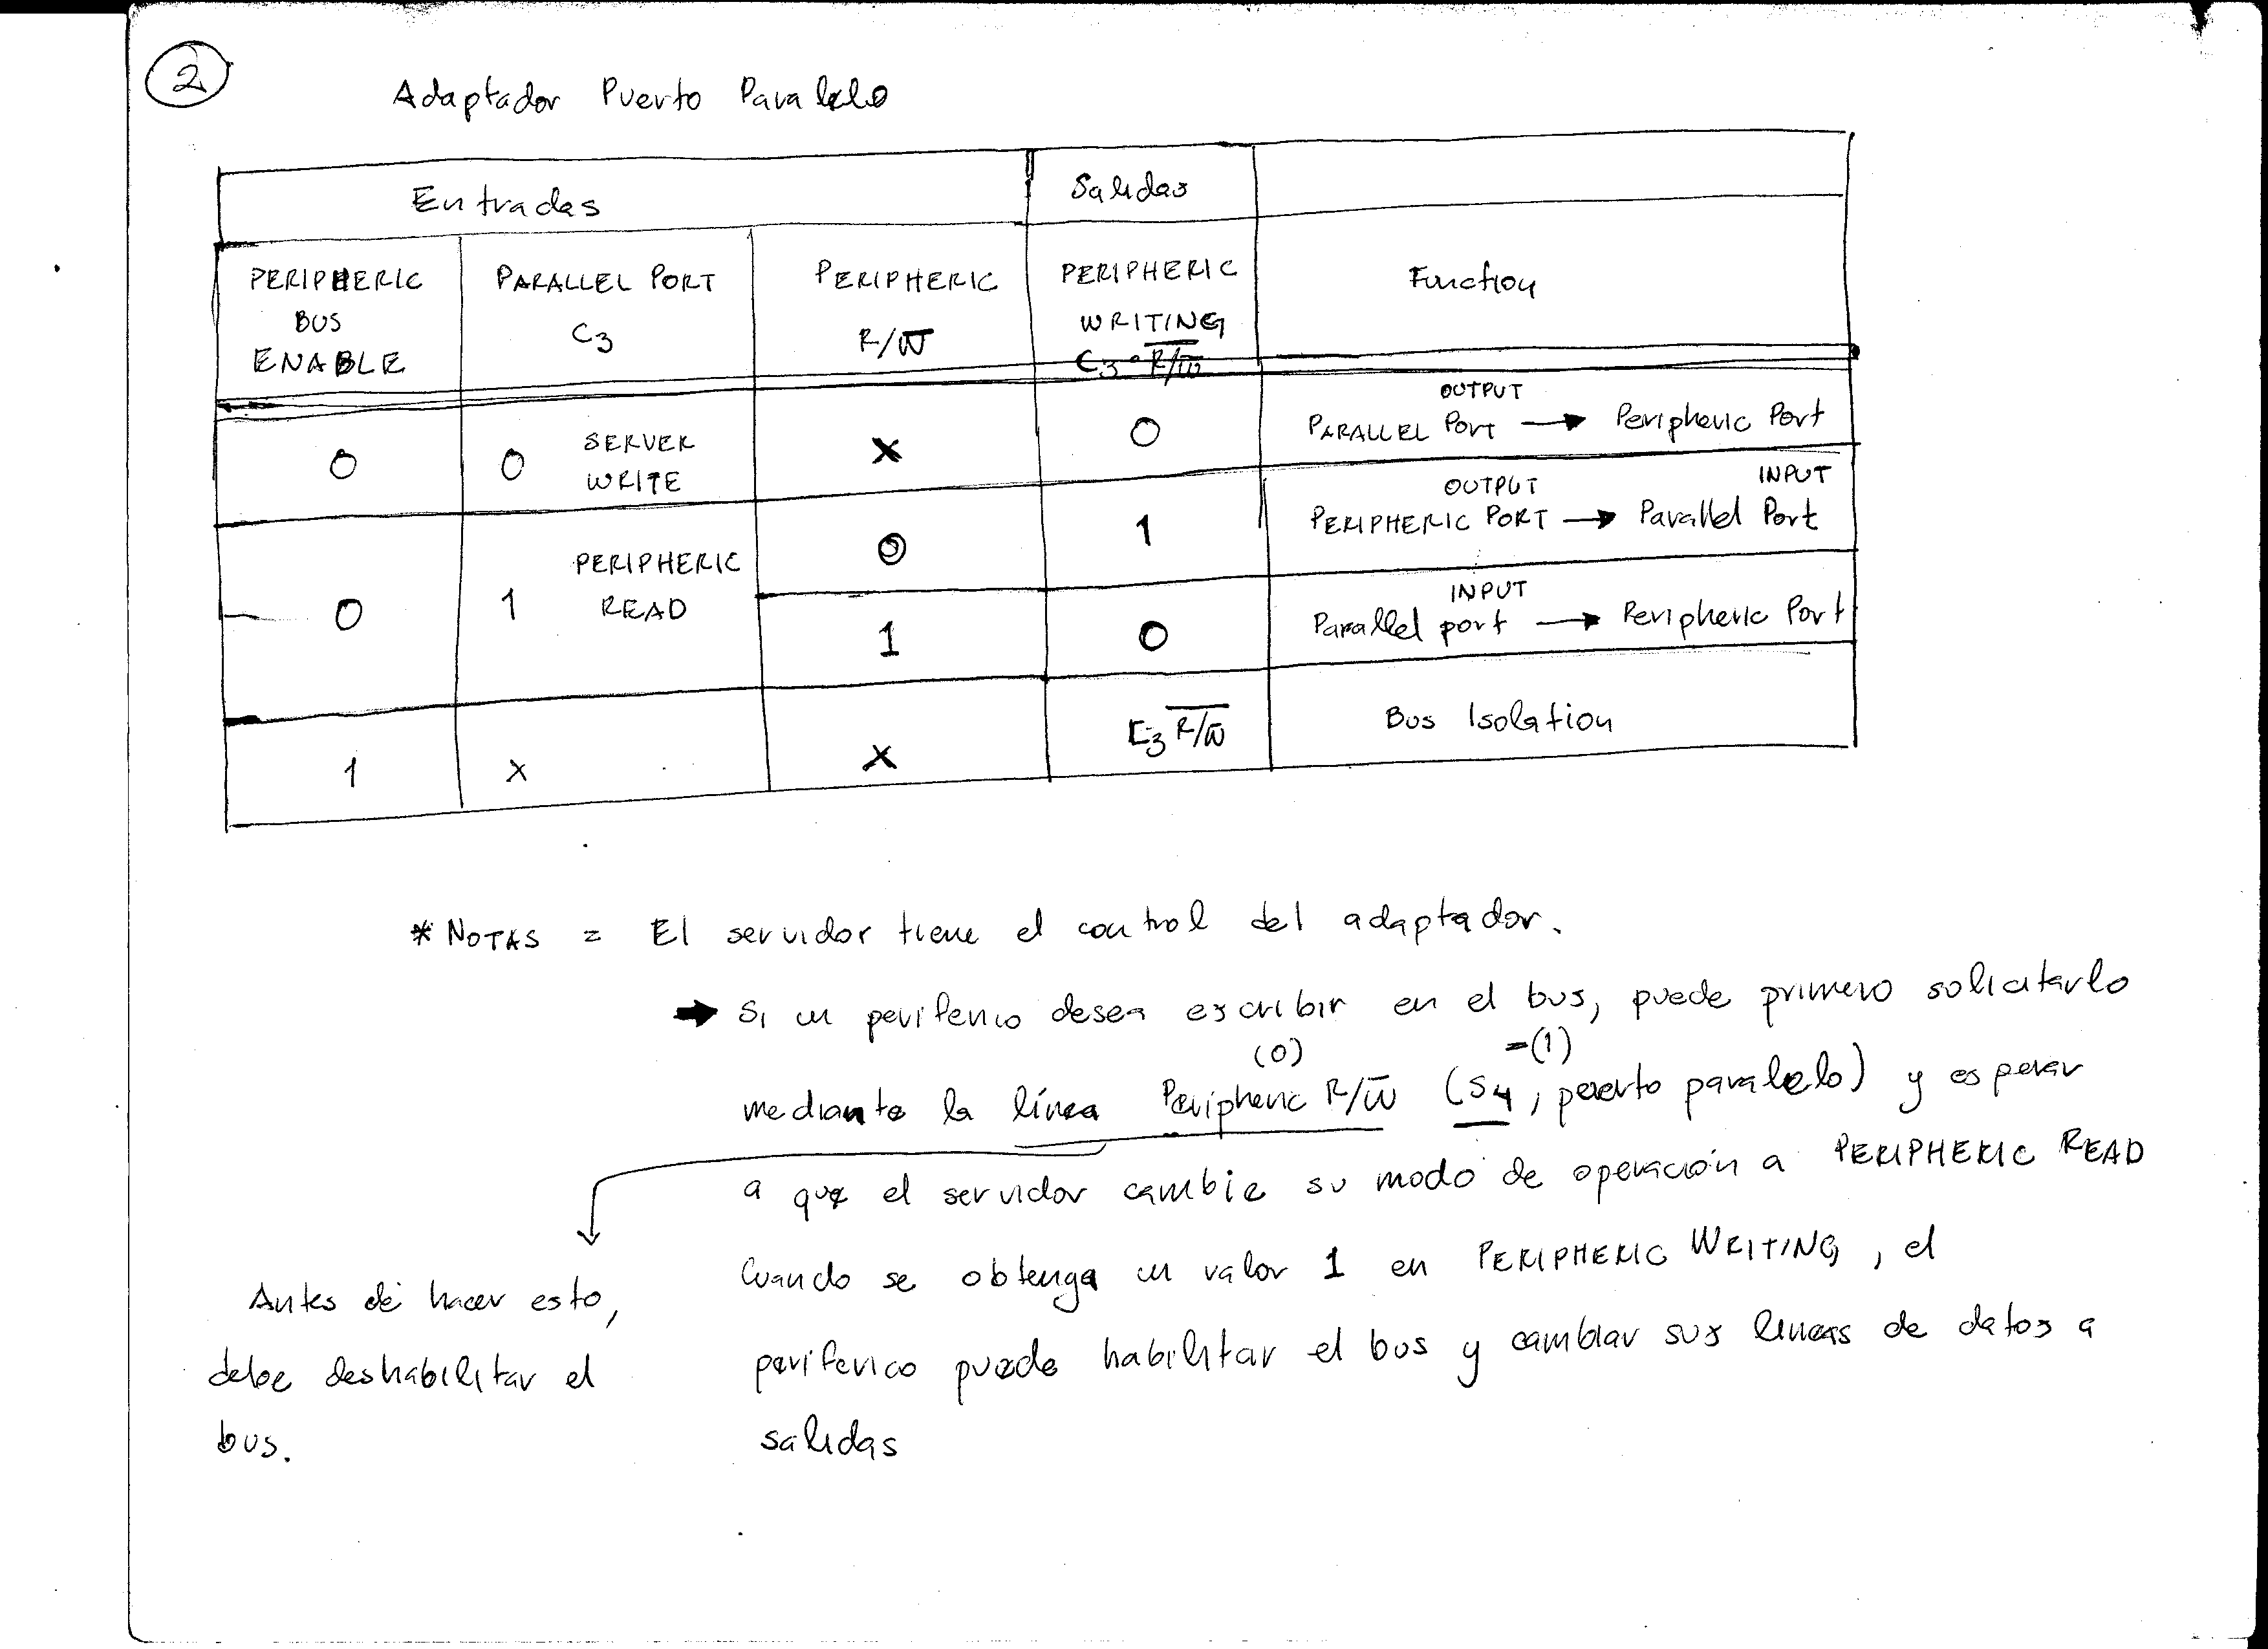 2
Adaptador Puerto Paralelo
Entradas Salidas
PERIPHERIC BUS ENABLE PARALLEL PORT C3 PERIPHERIC R/W̅ PERIPHERIC WRITING C3·R/W̅ Function
0 0 SERVER WRITE X 0 OUTPUT PARALLEL PORT → Peripheric Port
0 1 PERIPHERIC READ 0 1 OUTPUT PERIPHERIC PORT → INPUT Parallel Port
1 0 INPUT Parallel port → Peripheric Port
1 X X C3 R/W̅ Bus Isolation
* NOTAS = El servidor tiene el control del adaptador.
→ Si un periferico desea escribir en el bus, puede primero solicitarlo
(0) =(1)
mediante la línea Peripheric R/W̅ (S4, puerto paralelo) y esperar
a que el servidor cambie su modo de operación a PERIPHERIC READ
Cuando se obtenga un valor 1 en PERIPHERIC WRITING, el
periferico puede habilitar el bus y cambiar sus lineas de datos a
salidas
Antes de hacer esto,
debe deshabilitar el
bus.